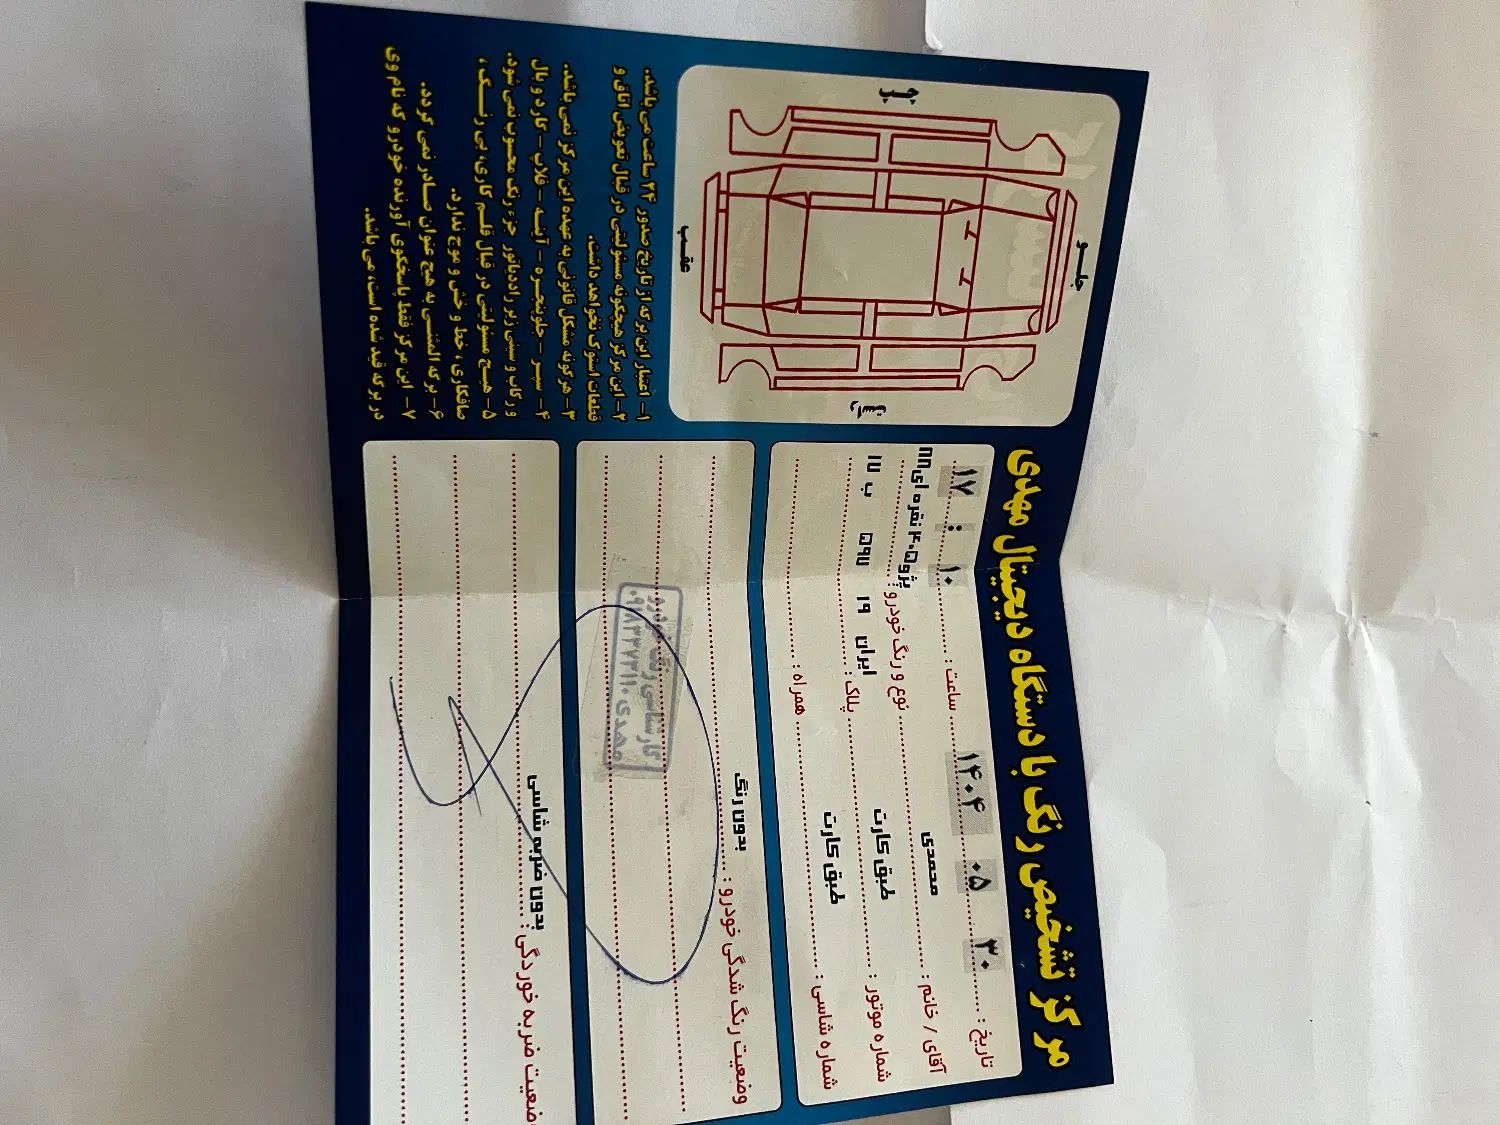 مرکز تشخیص رنگ با دستگاه دیجیتال مهدی
تاریخ : ۳۰ ۰۵ ۱۴۰۴ ساعت : ۱۰ : ۱۷
آقای / خانم : محمدی نوع و رنگ خودرو : پژو ۴۰۵ نقره ای ۸۸
شماره موتور : طبق کارت پلاک : ایران ۱۹ ۵۹۷ ب ۱۷
شماره شاسی : طبق کارت همراه :
وضعیت رنگ شدگی خودرو : بدون رنگ
کارشناسی رنگ خودرو
مهدی
وضعیت ضربه خوردگی : بدون ضربه شاسی
چپ
جلو
عقب
راست
۱- اعتبار این برگه از تاریخ صدور ۲۴ ساعت می باشد.
۲- این مرکز هیچگونه مسئولیتی در قبال تعویض اتاق و
قطعات استوک نخواهد داشت.
۳- هرگونه مشکل قانونی به عهده این مرکز نمی باشد.
۴- سپر - جلوپنجره - آینه - قلاب - گارد و بال
و رکاب و سینی زیر رادیاتور جزء رنگ محسوب نمی شود.
۵- هیچ مسئولیتی در قبال قلم کاری، بی رنگ،
صافکاری، خط و خش و موج ندارد.
۶- برگه المثنی به هیچ عنوان صادر نمی گردد.
۷- این مرکز فقط پاسخگوی آورنده خودرو که نام وی
در برگه قید شده است، می باشد.